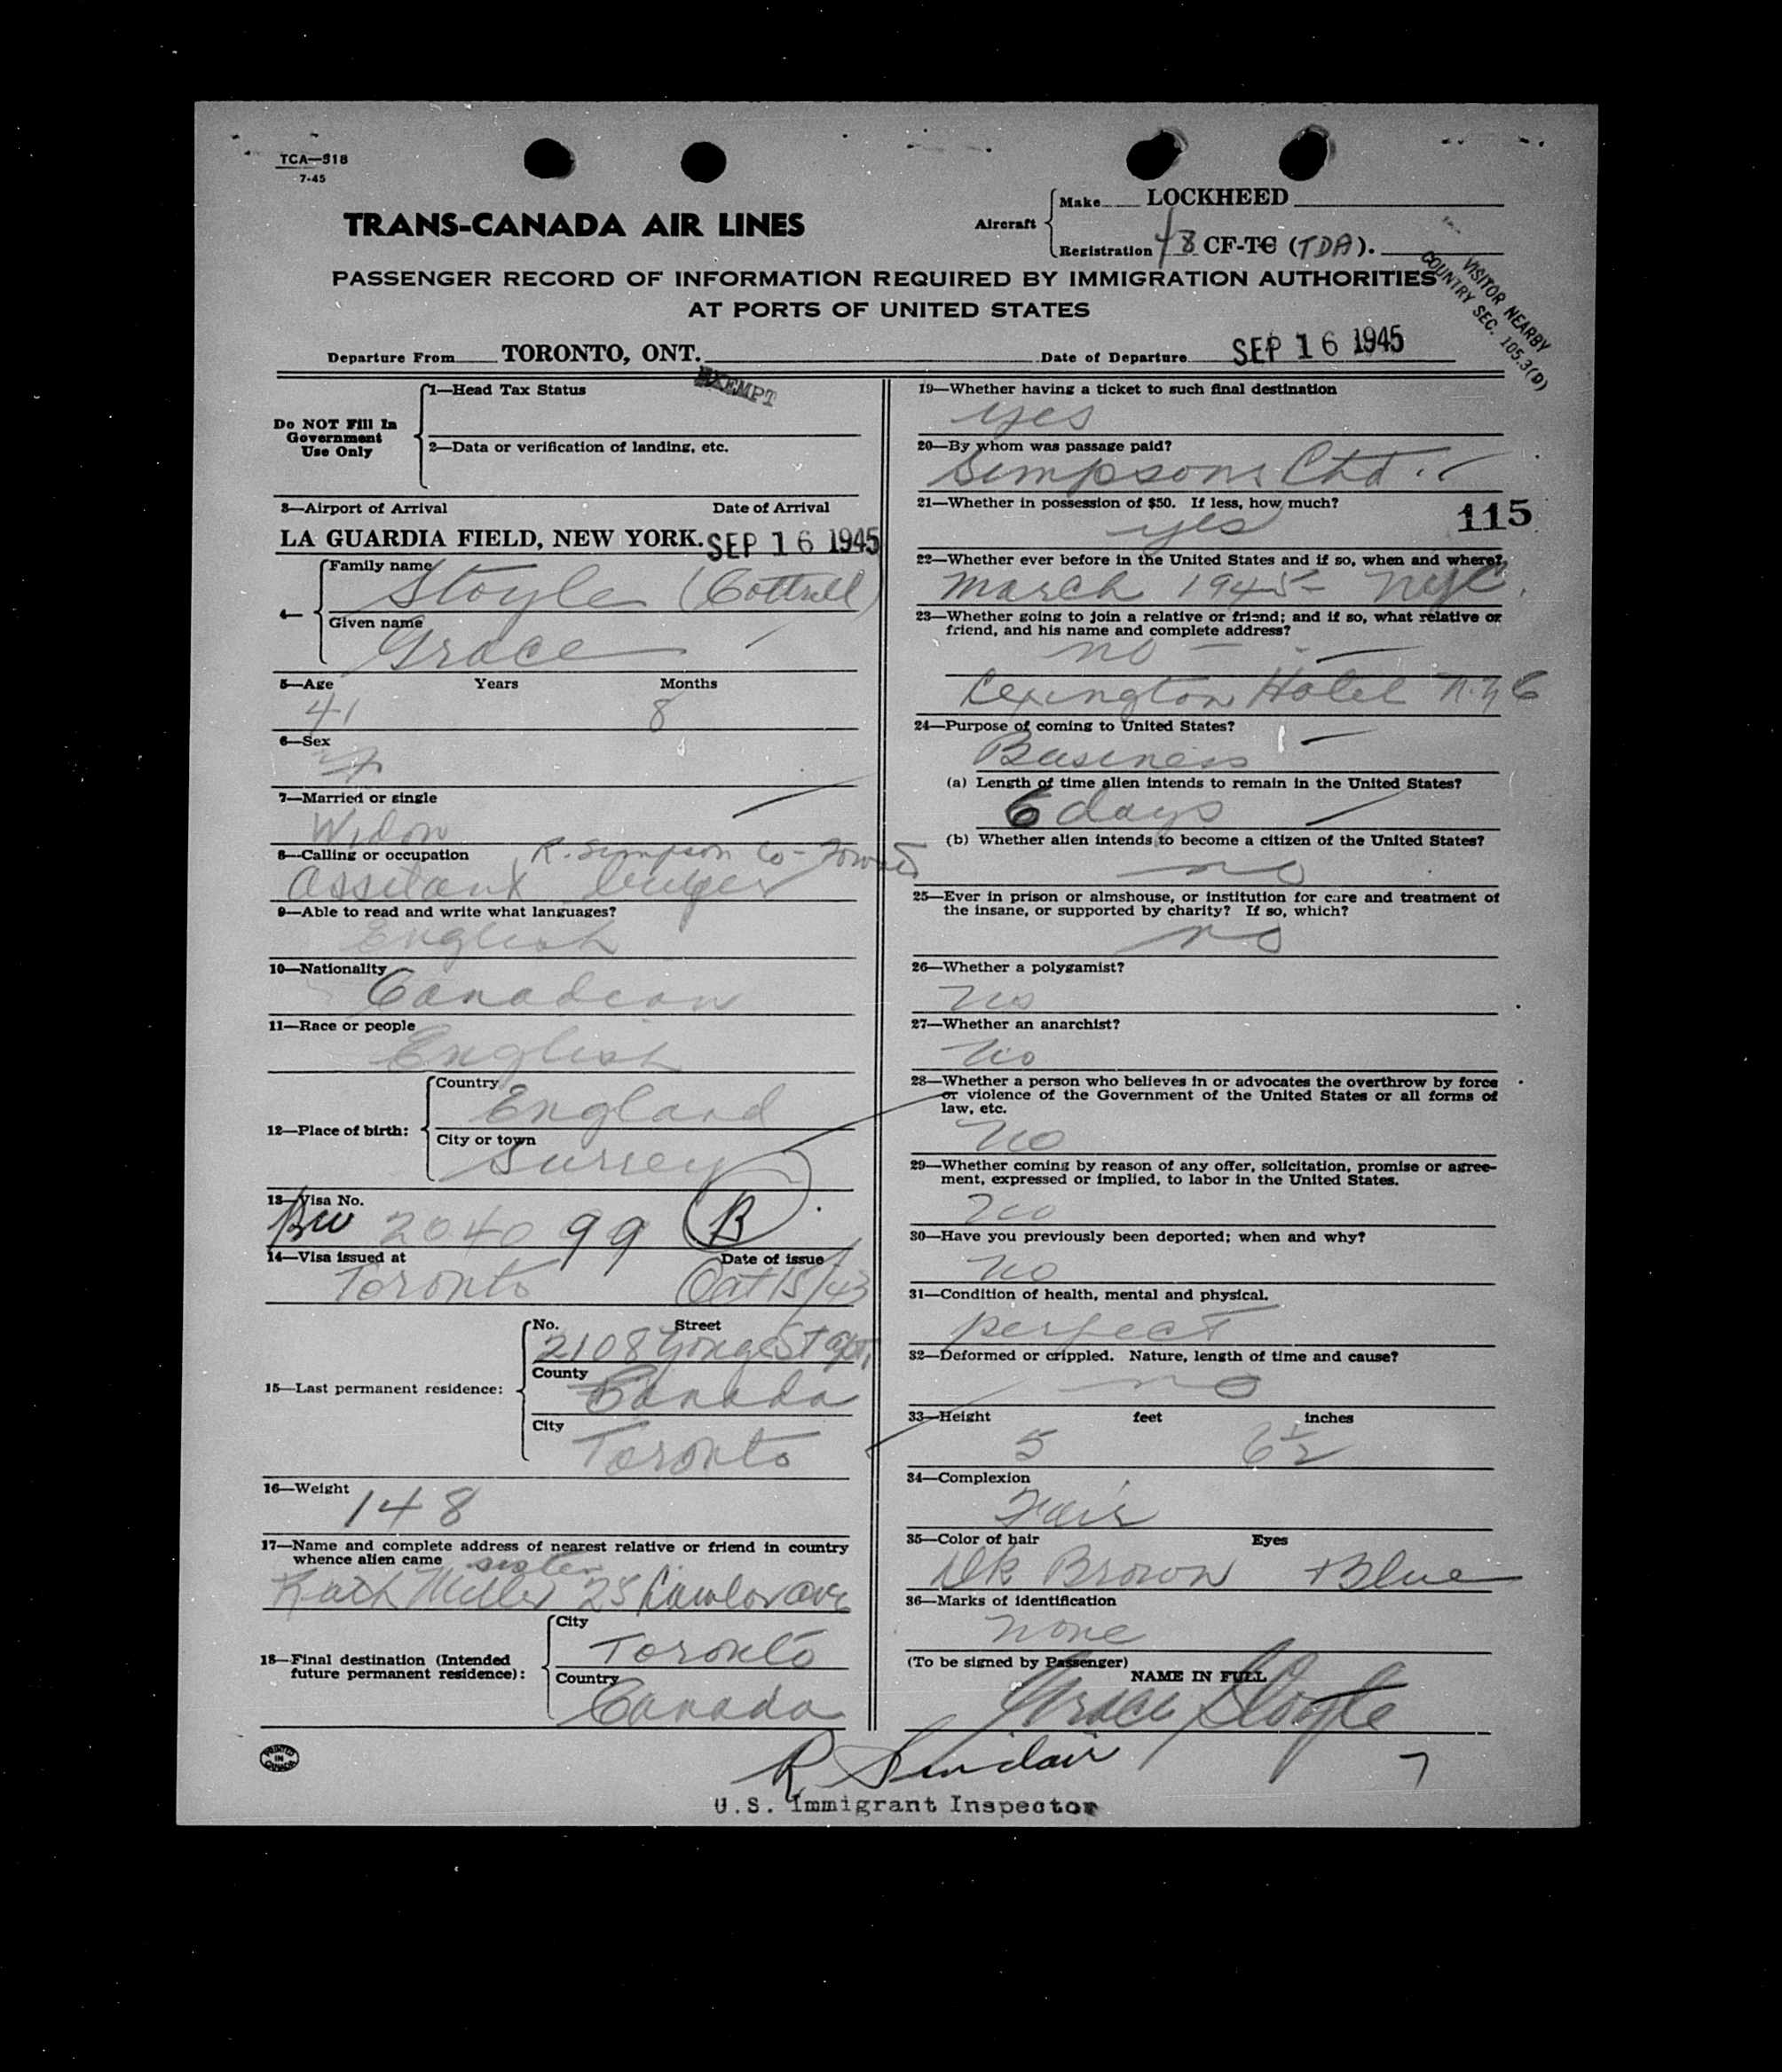 TCA—318
7-45
TRANS-CANADA AIR LINES
Aircraft
Make LOCKHEED
Registration 48 CF-TC (TDA).
VISITOR NEARBY
COUNTRY SEC. 105.3(D)
PASSENGER RECORD OF INFORMATION REQUIRED BY IMMIGRATION AUTHORITIES
AT PORTS OF UNITED STATES
Departure From TORONTO, ONT.
Date of Departure SEP 16 1945
Do NOT Fill In
Government
Use Only
1—Head Tax Status
EXEMPT
2—Data or verification of landing, etc.
3—Airport of Arrival Date of Arrival
LA GUARDIA FIELD, NEW YORK. SEP 16 1945
4—
Family name
Stoyle (Cottrell)
Given name
Grace
5—Age Years Months
41 8
6—Sex
F
7—Married or single
Widow
8—Calling or occupation R. Simpson Co - Toronto
Assitant buyer
9—Able to read and write what languages?
English
10—Nationality
Canadian
11—Race or people
English
12—Place of birth:
Country
England
City or town
Surrey
13—Visa No.
BW 204099 B
14—Visa issued at Date of issue
Toronto Oct 15/43
15—Last permanent residence:
No. Street
2108 Yonge St apt,
County
Canada
City
Toronto
16—Weight
148
17—Name and complete address of nearest relative or friend in country
whence alien came sister
Ruth Miller 25 Lawlor Ave
18—Final destination (Intended
future permanent residence):
City
Toronto
Country
Canada
19—Whether having a ticket to such final destination
yes
20—By whom was passage paid?
Simpsons Ltd.
21—Whether in possession of $50. If less, how much?
yes
115
22—Whether ever before in the United States and if so, when and where?
March 1945 - NYC.
23—Whether going to join a relative or friend; and if so, what relative or
friend, and his name and complete address?
no —
Lexington Hotel N.Y.C
24—Purpose of coming to United States?
Business
(a) Length of time alien intends to remain in the United States?
6 days
(b) Whether alien intends to become a citizen of the United States?
no
25—Ever in prison or almshouse, or institution for care and treatment of
the insane, or supported by charity? If so, which?
no
26—Whether a polygamist?
no
27—Whether an anarchist?
no
28—Whether a person who believes in or advocates the overthrow by force
or violence of the Government of the United States or all forms of
law, etc.
no
29—Whether coming by reason of any offer, solicitation, promise or agree-
ment, expressed or implied, to labor in the United States.
no
30—Have you previously been deported; when and why?
no
31—Condition of health, mental and physical.
perfect
32—Deformed or crippled. Nature, length of time and cause?
no
33—Height feet inches
5 6½
34—Complexion
Fair
35—Color of hair Eyes
Dk Brown Blue
36—Marks of identification
none
(To be signed by Passenger)
NAME IN FULL
Grace Stoyle
PRINTED
IN
CANADA
R Sinclair
7
U.S. Immigrant Inspector